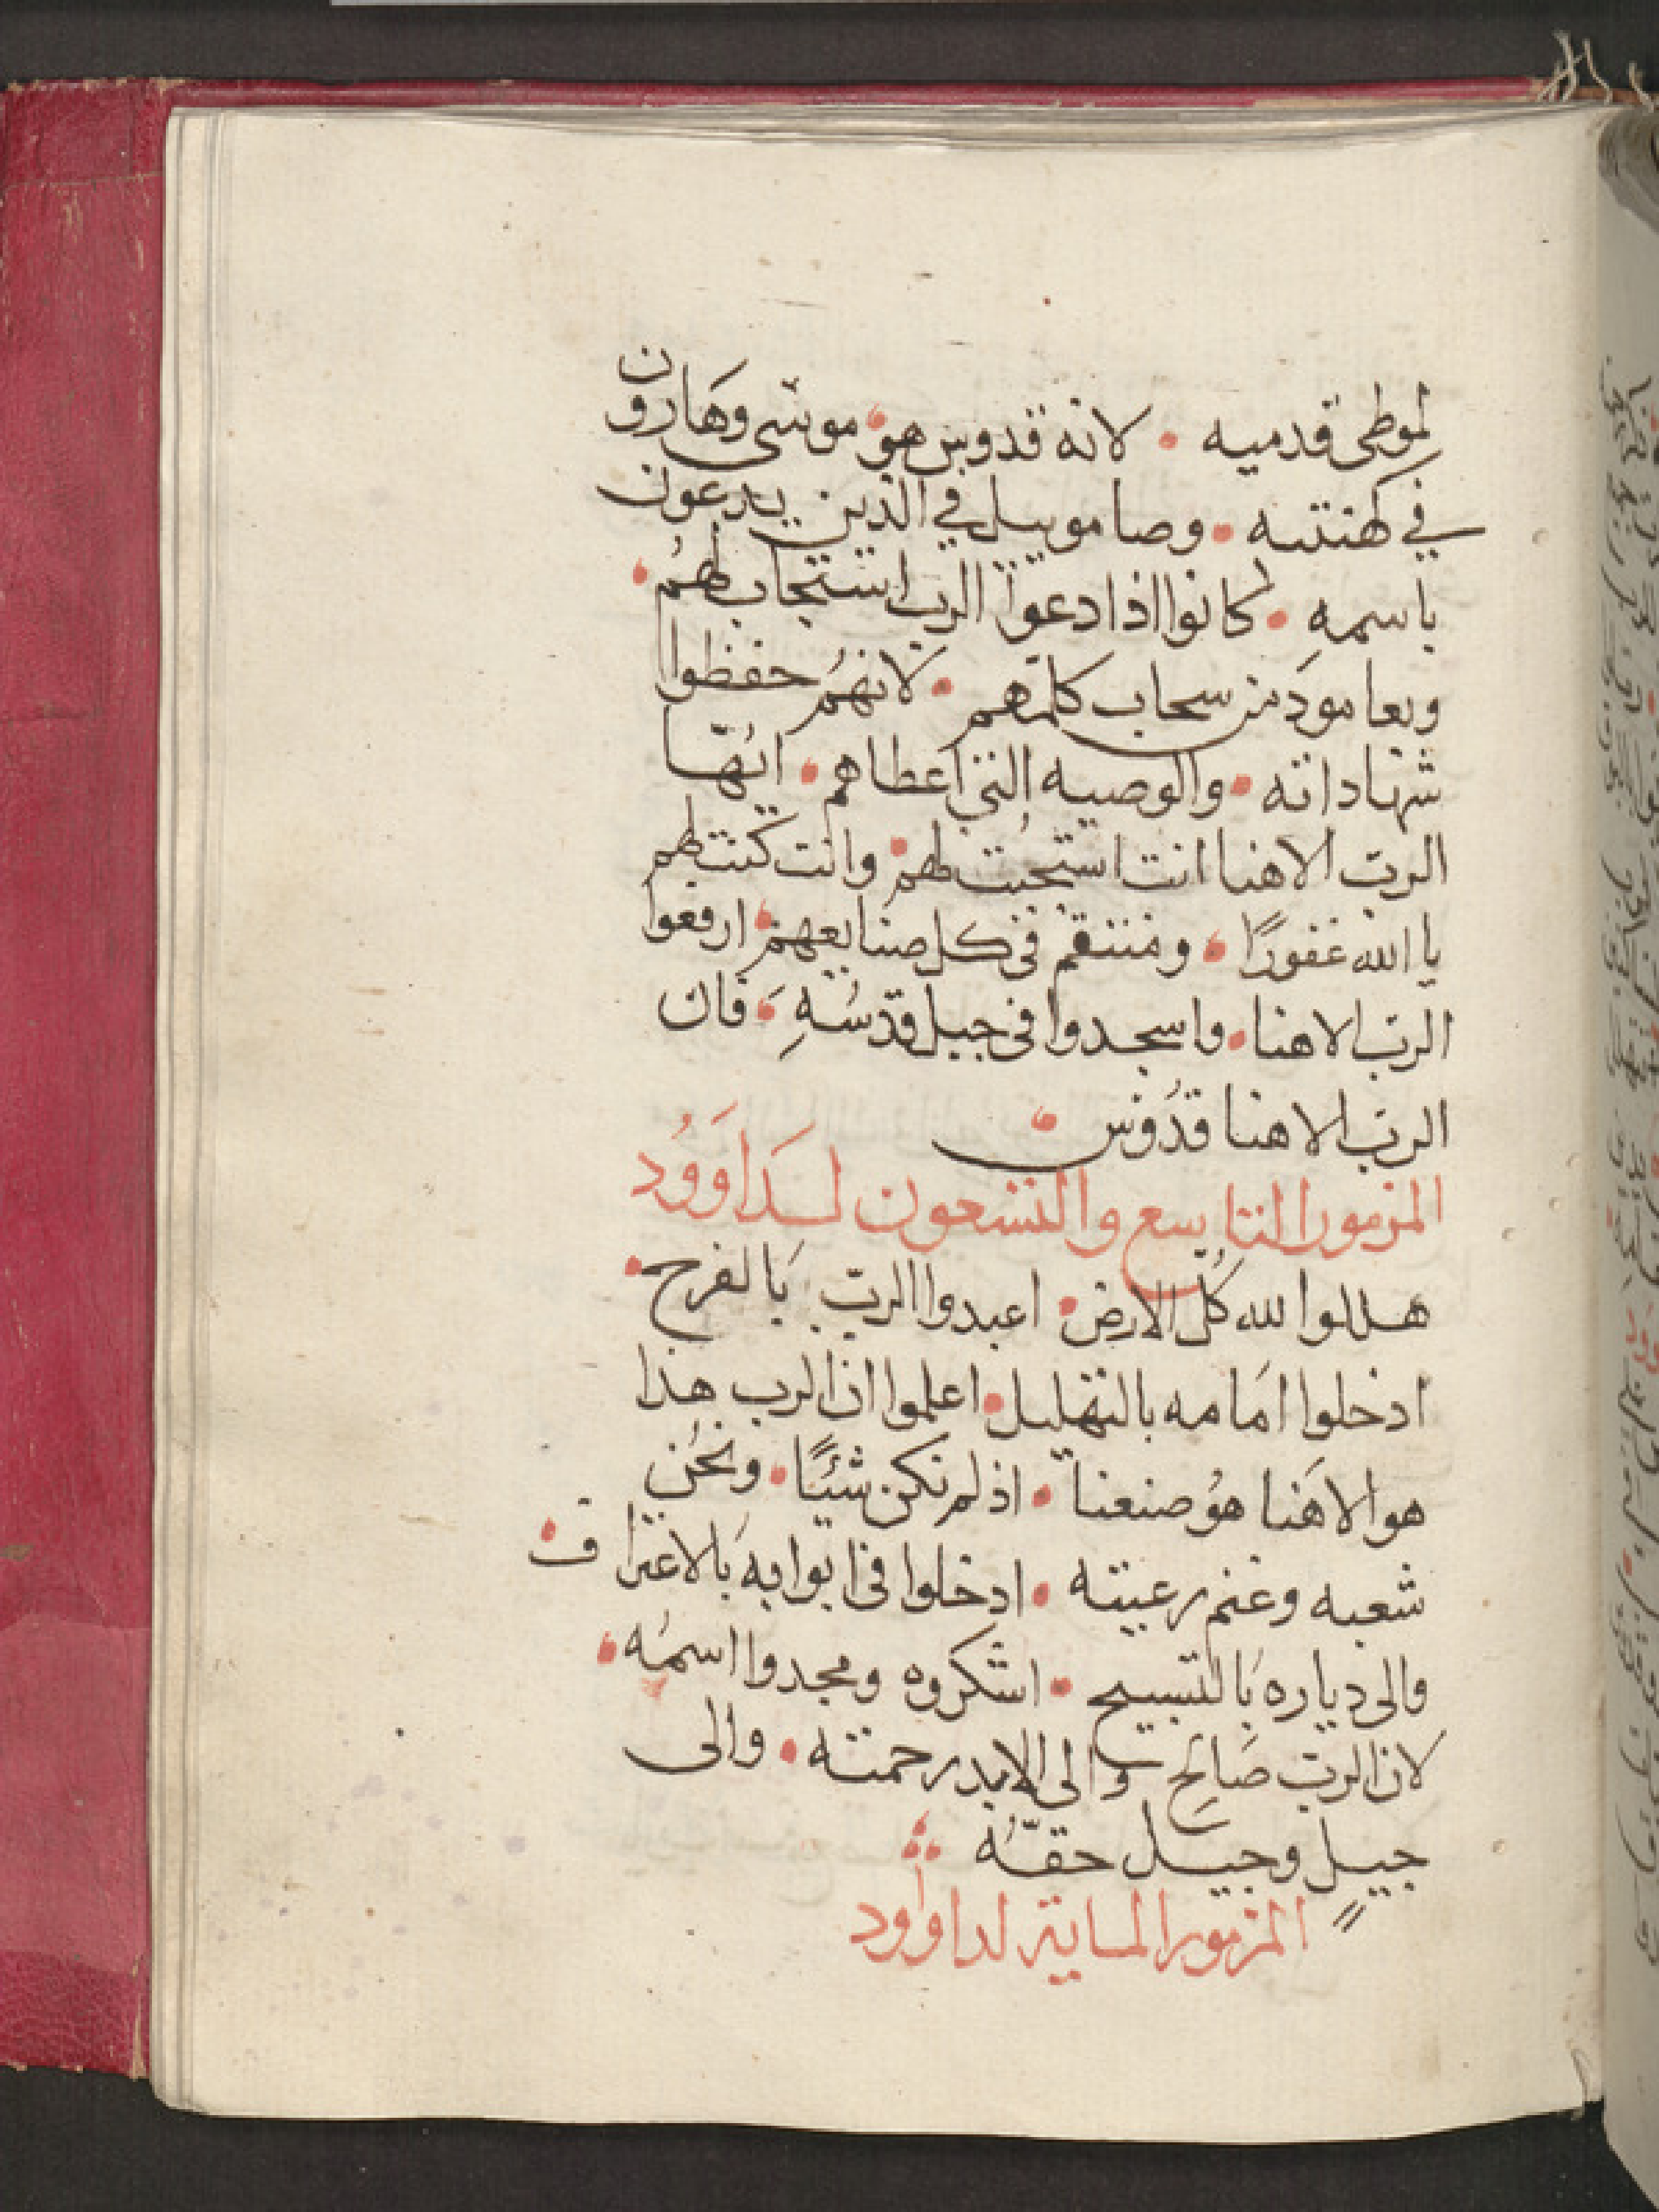 لموطى قدميه • لانه قدوس هو • موسى وهارون
في كهنته • وصاموييل في الذين يدعون
باسمهِ • كانوا اذا دعوا الرب استجاب لهُم •
وبعامود من سحاب كلمهم • لانهُم حفظوا
شهاداته • والوصيه التي اعطاهم • ايُّها
الربّ الاهنا انت استجبت لهم • وانت كنت لهم
يا الله غفورًا • ومنتقم في كل صنايعهم • ارفعوا
الربّ الاهنا • واسجدوا في جبل قدسُهِ • فان
الربّ الاهنا قدُوس •
المزمور التاسع والتسعون لداوُود
هللوا لله كُل الارض • اعبدوا الربّ بالفرح •
ادخلوا امامه بالتهليل • اعلموا ان الرب هذا
هو الاهنا هوُ صنعنا • اذ لم نكن شيًّا • ونحُن
شعبه وغنم رعيته • ادخلوا في ابوابه بالاعتراف •
والى دياره بالتسبيح • اشكروه ومجدوا اسمُه •
لان الربّ صَالحِ والى الابد رحمته • والى
جيلٍ وجيل حقّه
المزمور الماية لداوود